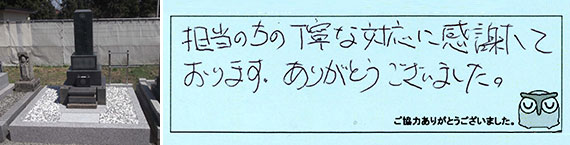 担当の方の丁寧な対応に感謝して
おります。ありがとうございました。
ご協力ありがとうございました。